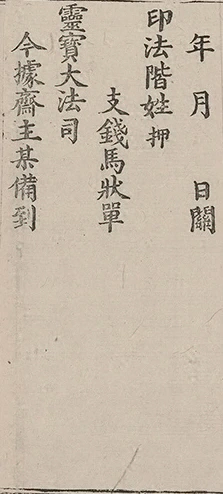 年 月 日關
印法階姓 押
支錢馬狀單
靈寶大法司
今據齋主某備到